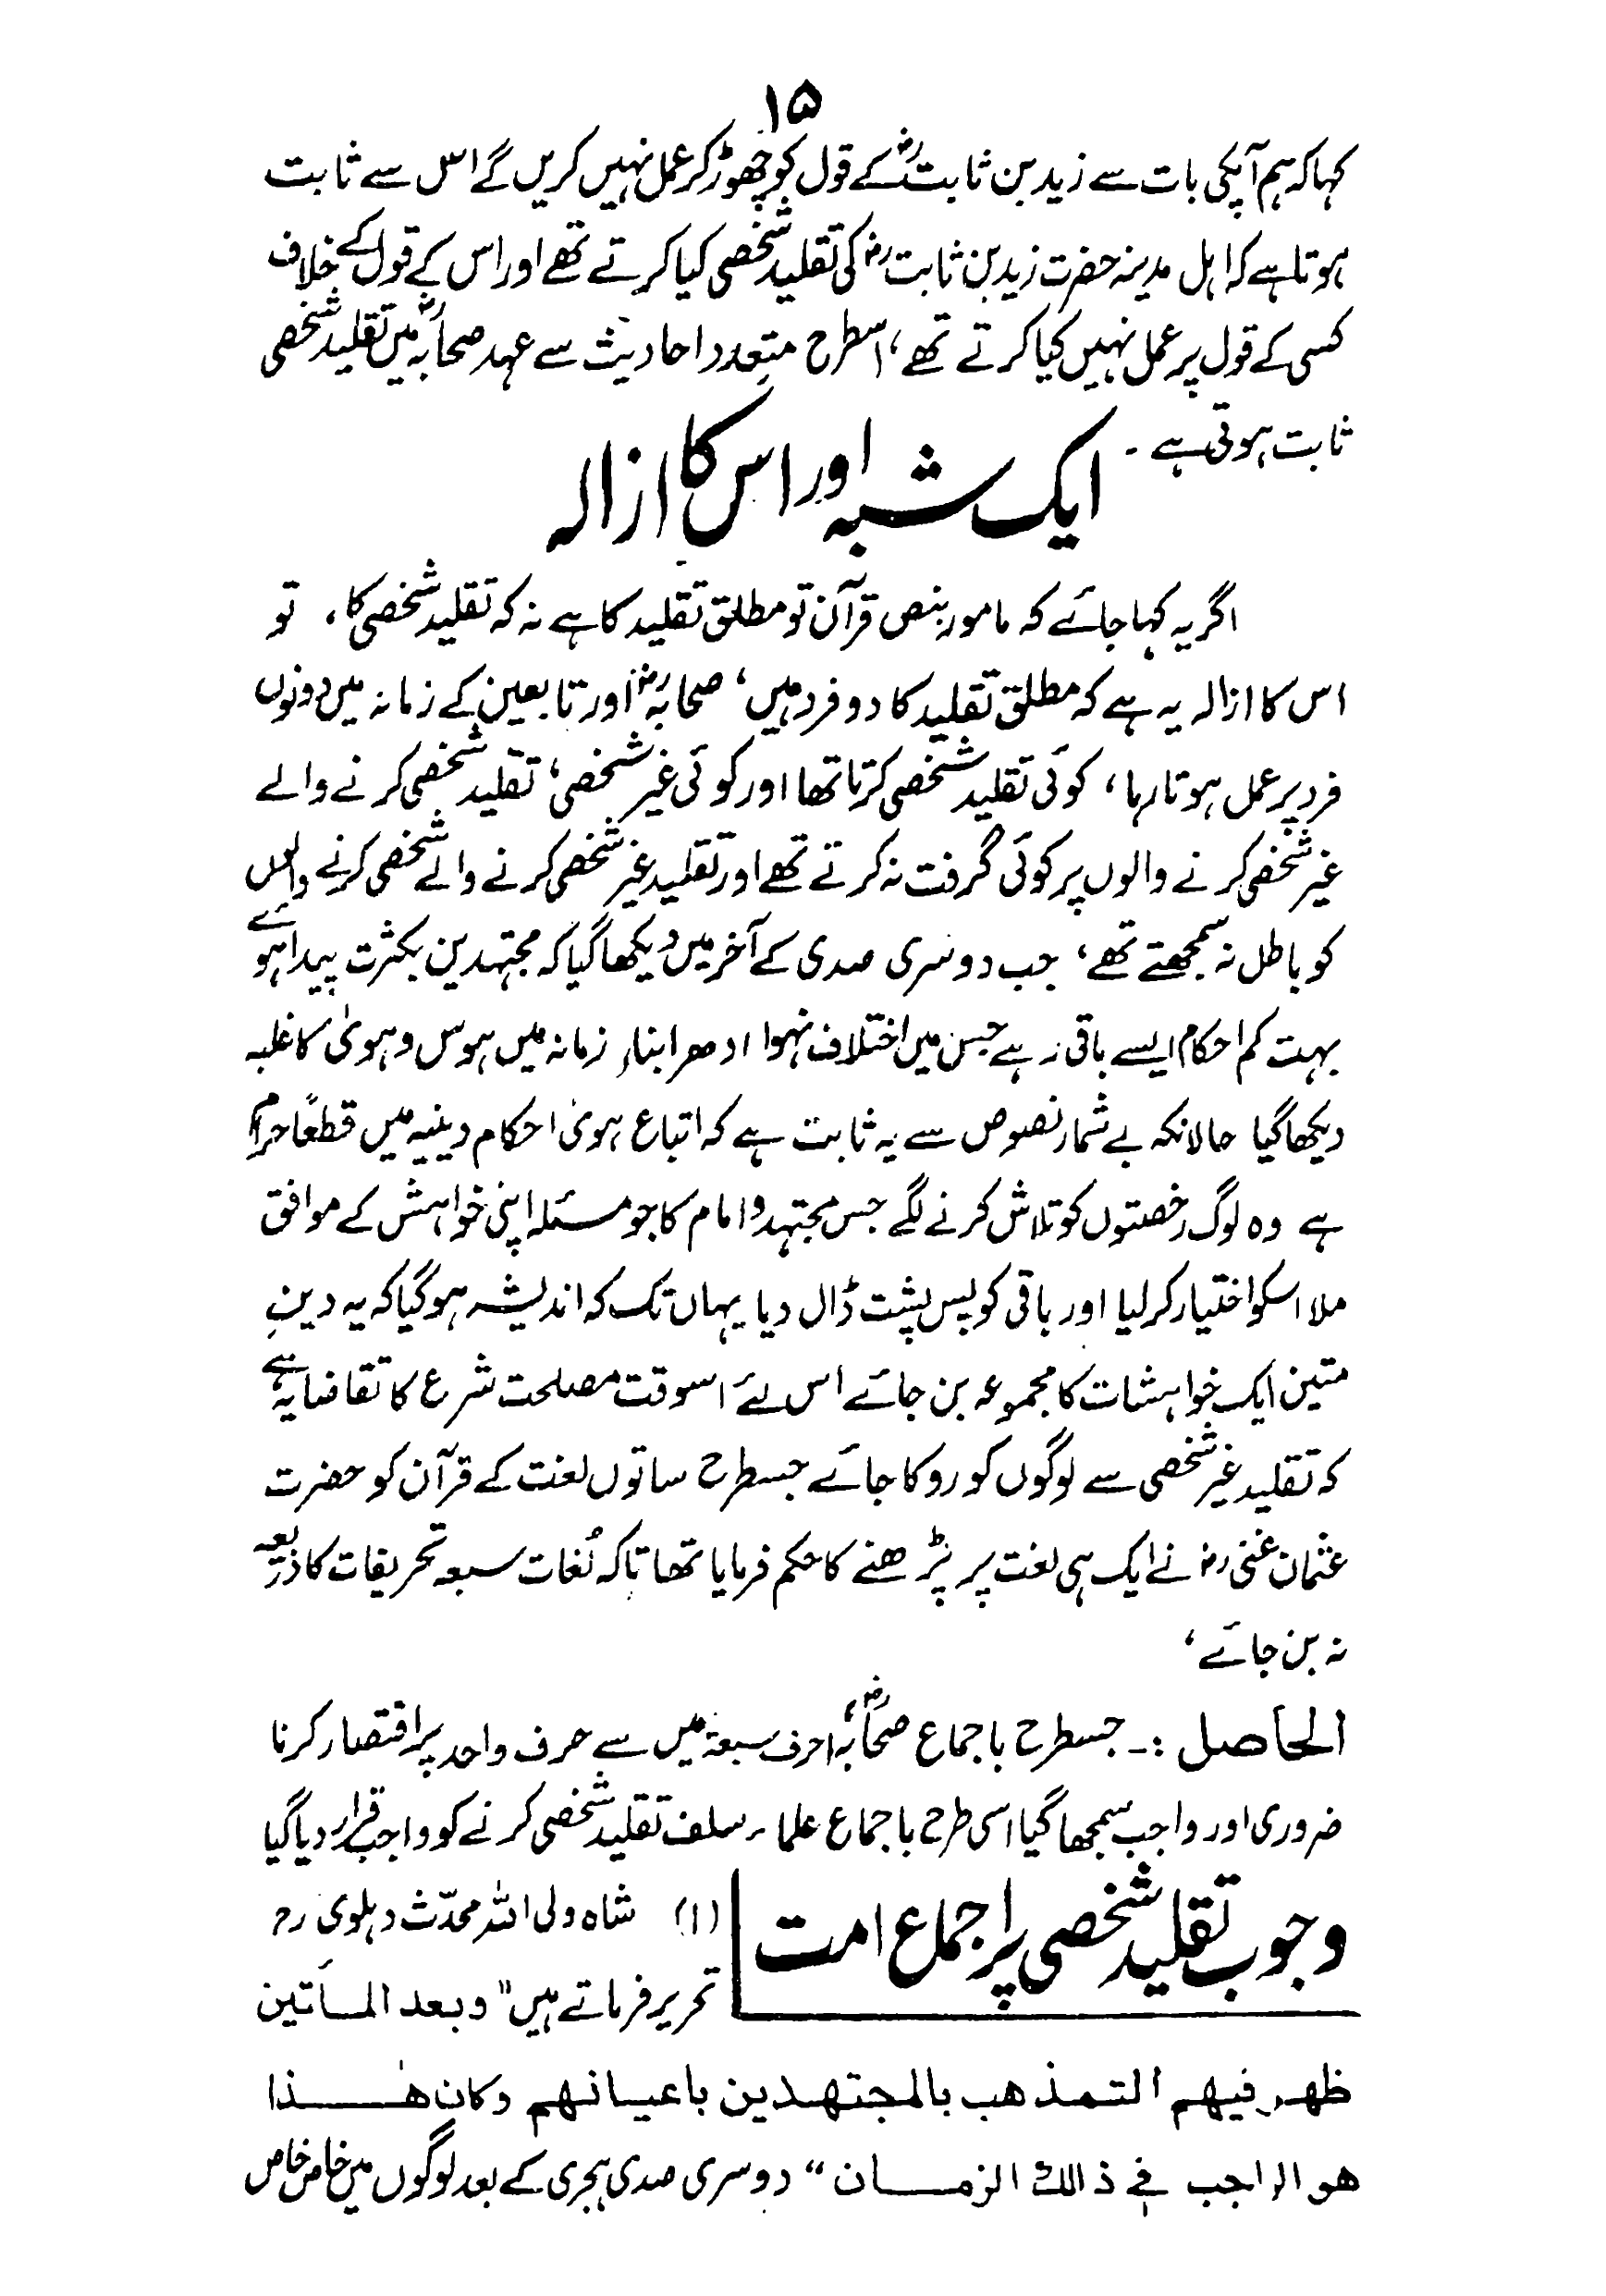 ۱۵
کہا کہ ہم آپکی بات سے زید بن ثابتؓ کے قول کو چھوڑ کر عمل نہیں کریں گے اس سے ثابت
ہوتا ہے کہ اہل مدینہ حضرت زید بن ثابت رض کی تقلید شخصی کیا کرتے تھے اور اس کے قول کے خلاف
کسی کے قول پر عمل نہیں کیا کرتے تھے ، اسطرح متعدد احادیث سے عہد صحابہؓ میں تقلید شخصی
ثابت ہوتی ہے ۔
ایک شبہ اور اس کا ازالہ
اگر یہ کہا جائے کہ مامور بنص قرآن تو مطلق تقلید کا ہے نہ کہ تقلید شخصی کا ، تو
اس کا ازالہ یہ ہے کہ مطلق تقلید کا دو فرد ہیں ، صحابہ رض اور تابعین کے زمانہ میں دونوں
فرد پر عمل ہوتا رہا ، کوئی تقلید شخصی کرتا تھا اور کوئی غیر شخصی ، تقلید شخصی کرنے والے
غیر شخصی کرنے والوں پر کوئی گرفت نہ کرتے تھے اور تقلید غیر شخصی کرنے والے شخصی کرنے والوں
کو باطل نہ سمجھتے تھے ، جب دوسری صدی کے آخر میں دیکھا گیا کہ مجتہدین بکثرت پیدا ہوئے
بہت کم احکام ایسے باقی رہے جس میں اختلاف نہوا ادھر ابناء زمانہ میں ہوس و ہویٰ کا غلبہ
دیکھا گیا حالانکہ بے شمار نصوص سے یہ ثابت ہے کہ اتباع ہویٰ احکام دینیہ میں قطعًا حرام
ہے وہ لوگ رخصتوں کو تلاش کرنے لگے جس مجتہد و امام کا جو مسئلہ اپنی خواہش کے موافق
ملا اسکو اختیار کر لیا اور باقی کو پس پشت ڈال دیا یہاں تک کہ اندیشہ ہو گیا کہ یہ دینِ
متین ایک خواہشات کا مجموعہ بن جائے اس لئے اسوقت مصلحت شرع کا تقاضا یہ ہے
کہ تقلید غیر شخصی سے لوگوں کو روکا جائے جسطرح ساتوں لغت کے قرآن کو حضرت
عثمان غنی رض نے ایک ہی لغت پر پڑھنے کا حکم فرمایا تھا تاکہ لُغات سبعہ تحریفات کا ذریعہ
نہ بن جائے ،
الحاصل :۔ جسطرح باجماع صحابہؓ احرف سبعۃ میں سے حرف واحد پر اقتصار کرنا
ضروری اور واجب سمجھا گیا اسی طرح باجماع علماء سلف تقلید شخصی کرنے کو واجب قرار دیا گیا
وجوب تقلید شخصی پر اجماع امت
(۱) شاہ ولی اللہ محدّث دہلوی رح
تحریر فرماتے ہیں " وبعد المأتین
ظهر فیهم التمذهب بالمجتهدین باعیانهم وکان هٰذا
هو الواجب فی ذالك الزمان " دوسری صدی ہجری کے بعد لوگوں میں خاص خاص